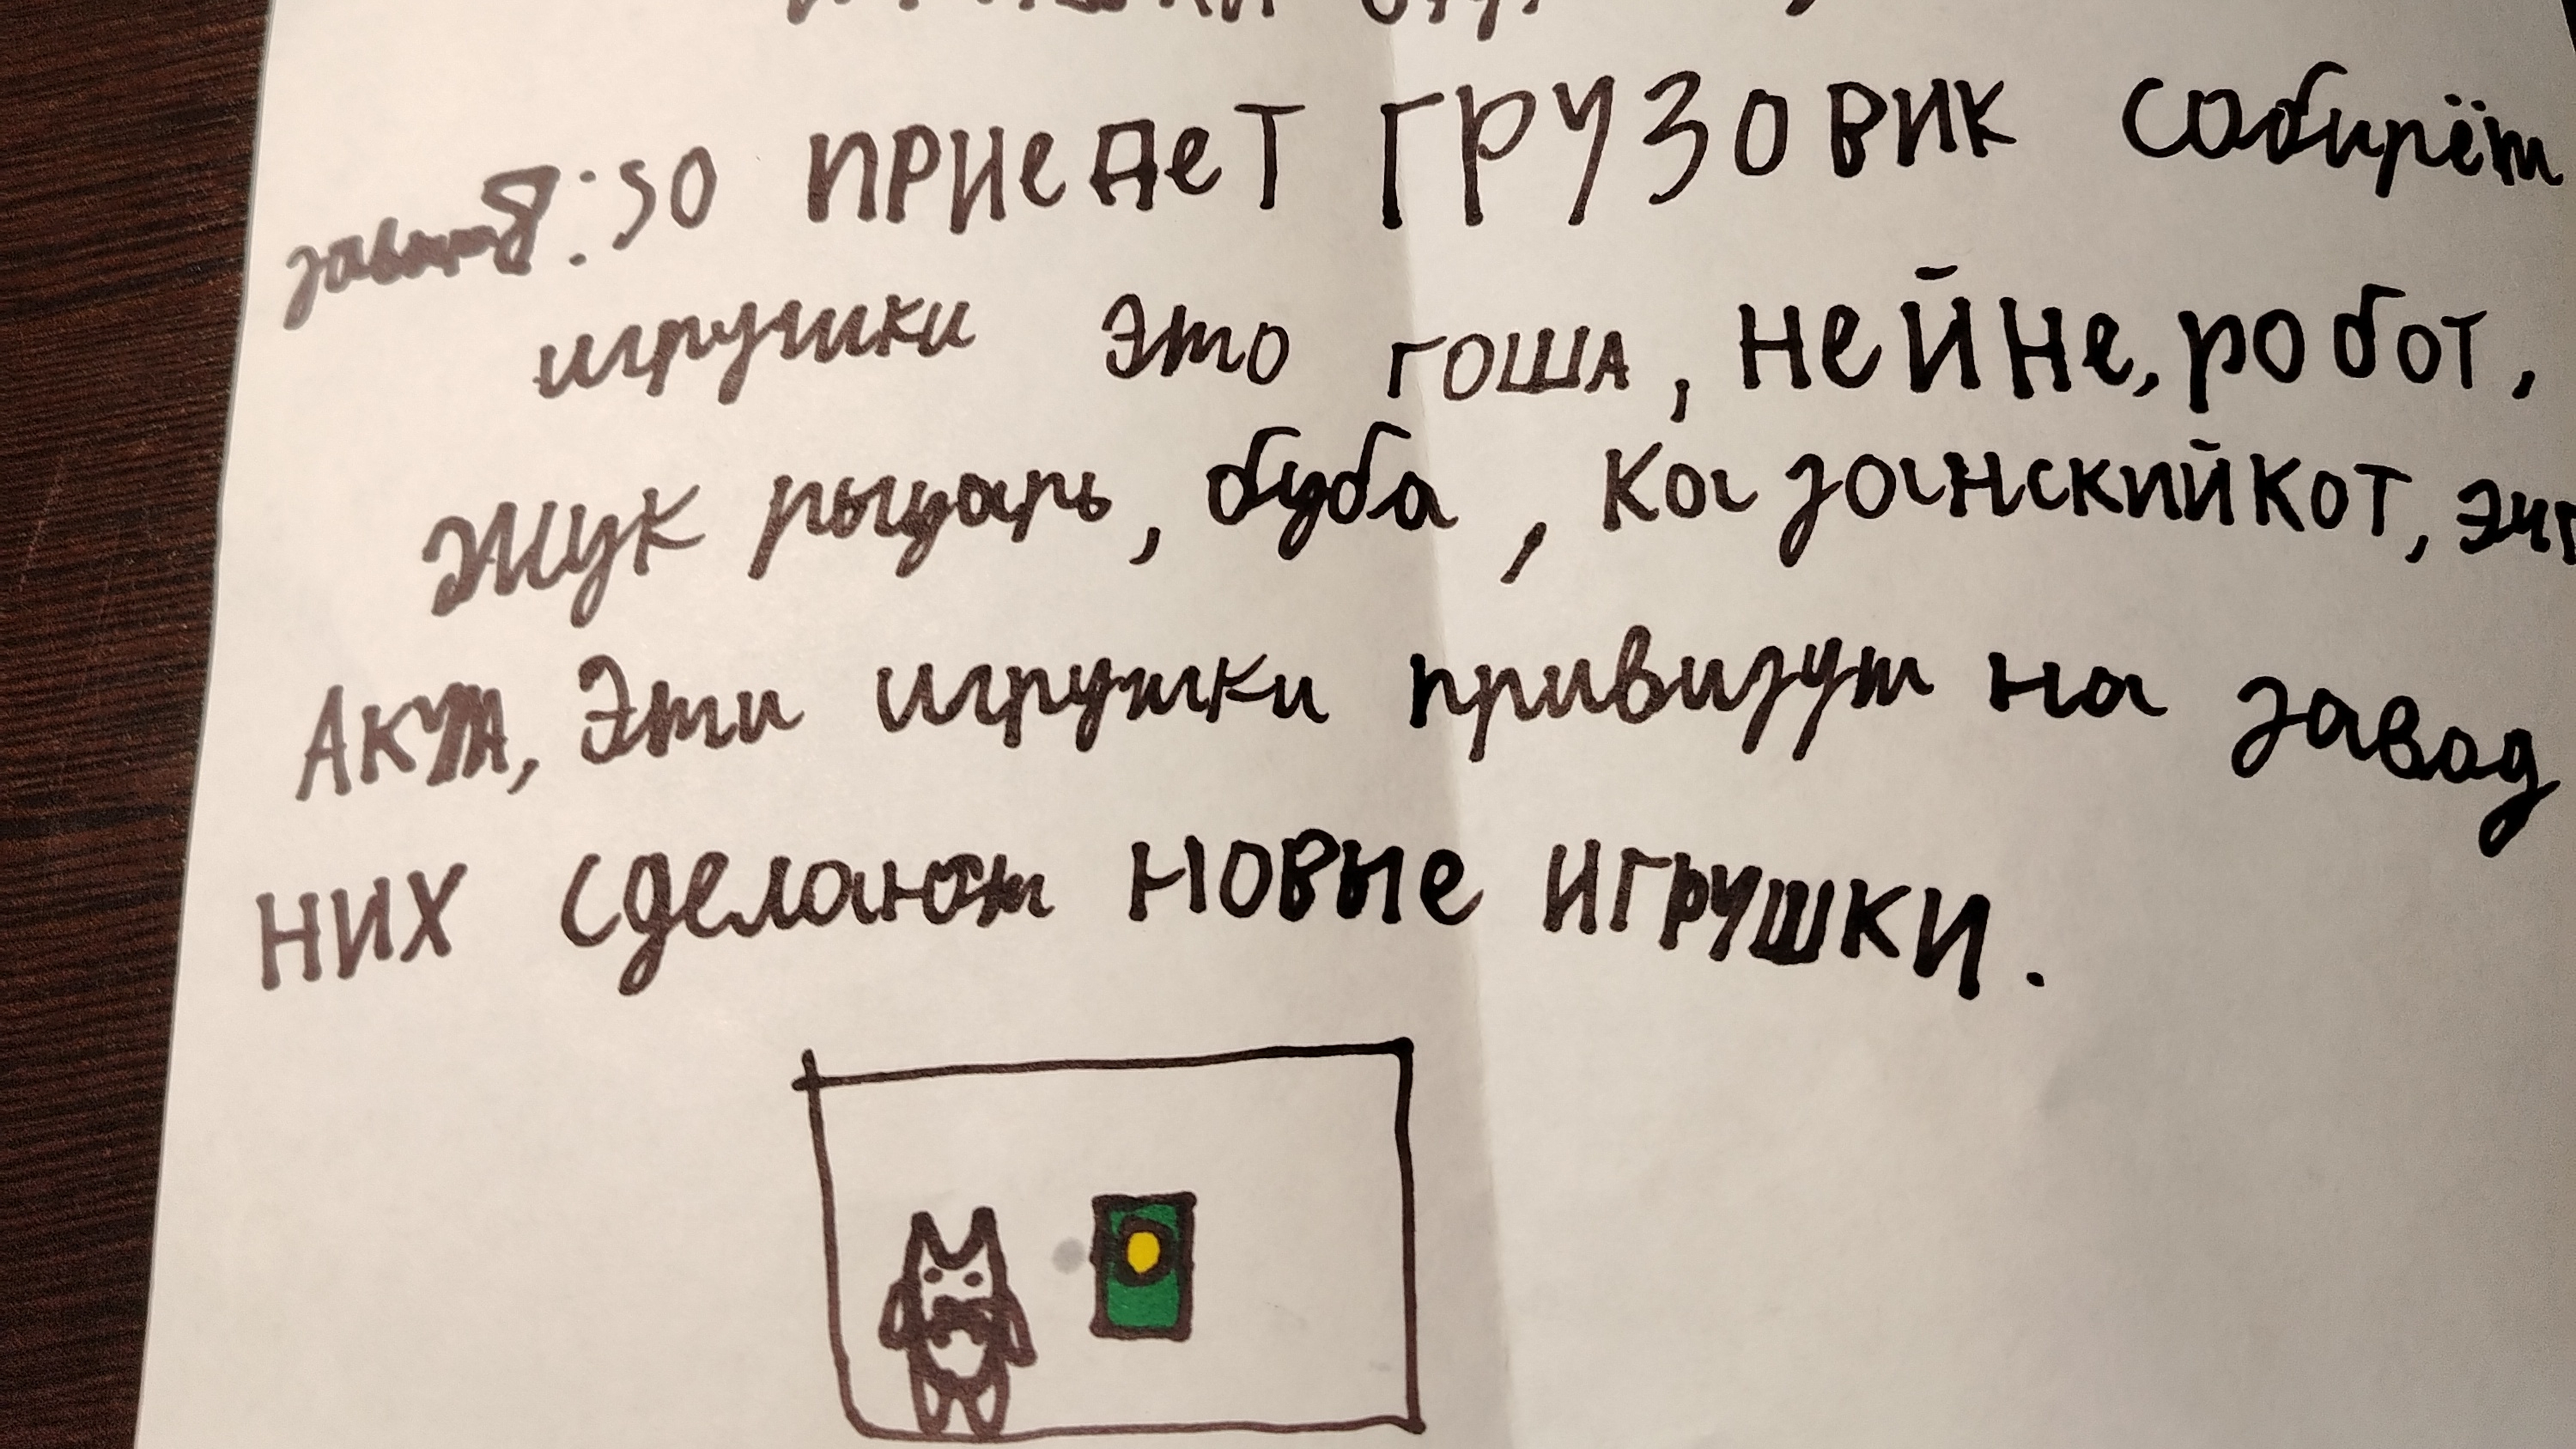 8:50 ПРИЕДЕТ ГРУЗОВИК собирёт
игрушки это ГОША, Нейне, робот,
жук рыцарь, буба, Казанский кот,
Эти игрушки привизут на завод
них сделают новые игрушки.